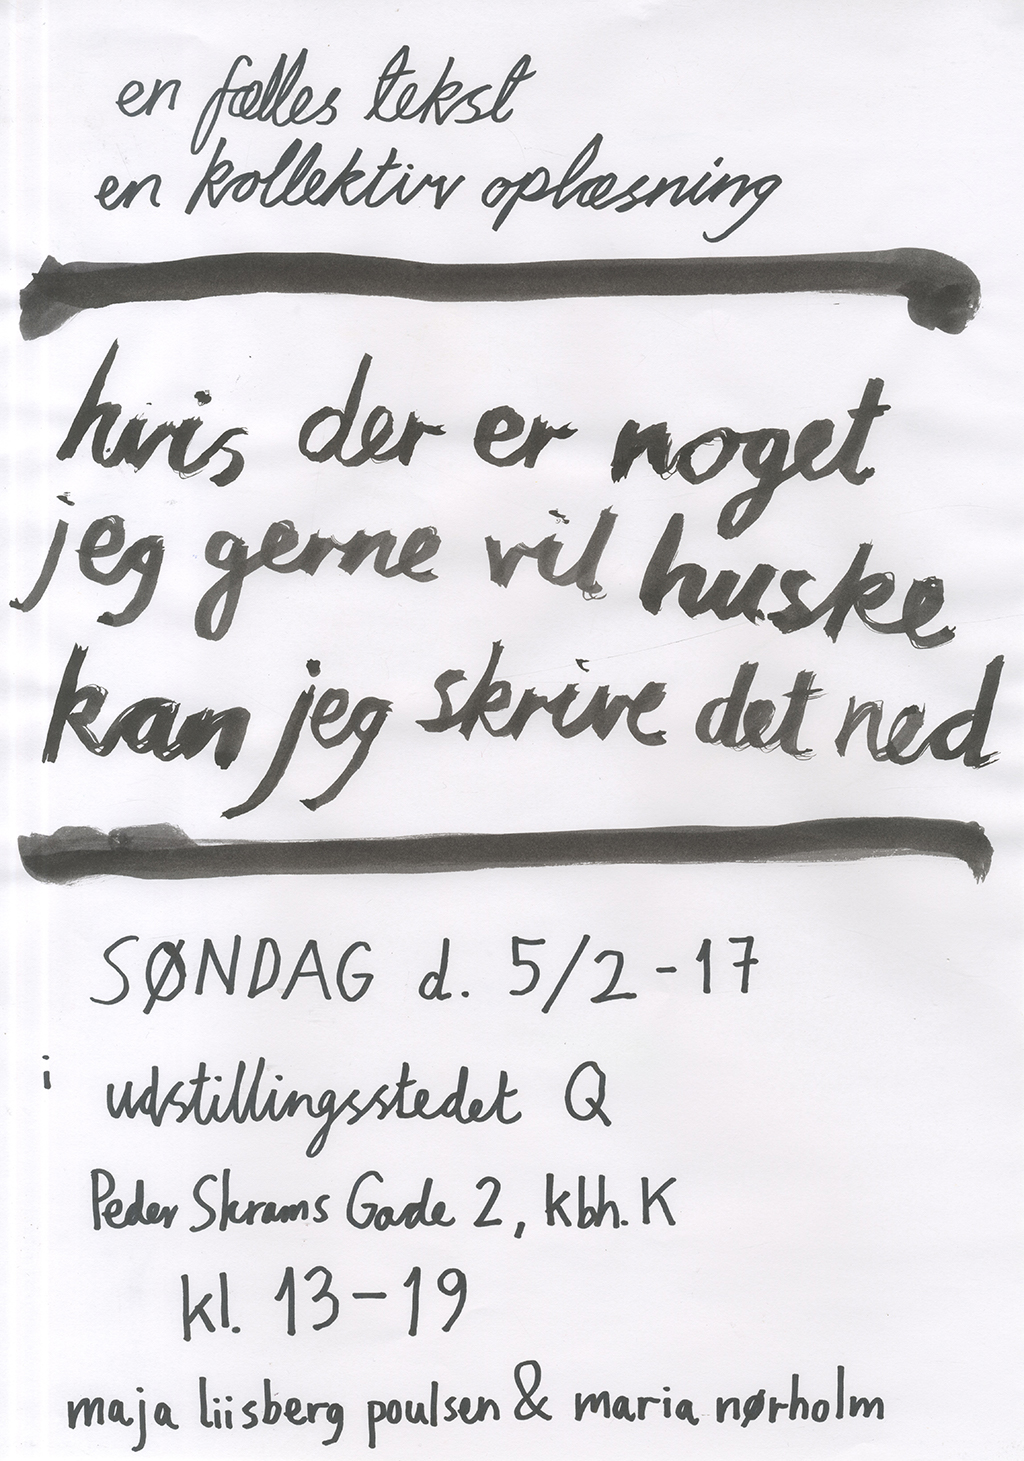 en fælles tekst
en kollektiv oplæsning
hvis der er noget
jeg gerne vil huske
kan jeg skrive det ned
SØNDAG d. 5/2-17
i udstillingsstedet Q
Peder Skrams Gade 2, kbh. K
kl. 13-19
maja liisberg poulsen & maria nørholm